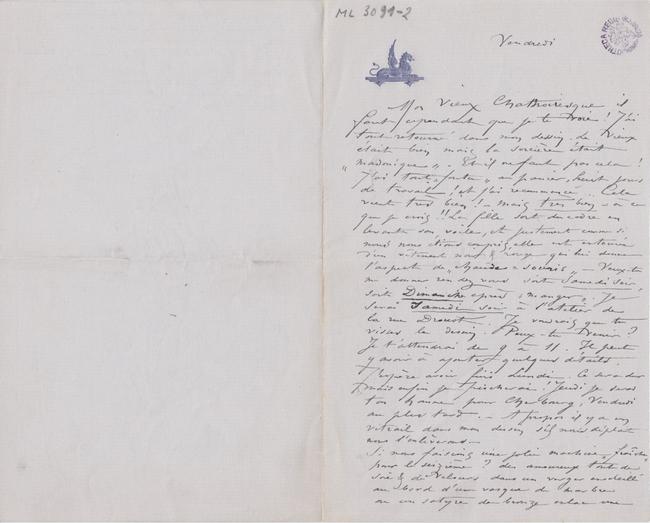 ML 3091-2
Vendredi
Mon Vieux Chattoiresque il
faut cependant que je te voie ! J'ai
tout retourné dans mon dessin. Le vieux
était bien mais la sorcière était
"madonique". Et il ne faut pas cela !
J'ai tout foutu au panier, huit jours
de travail ! et j'ai recommencé. Cela
vient très bien ! - mais très bien à ce
que je crois !! La fille sort du cadre en
levant son voile, et justement comme si
nous nous étions compris, elle est entourée
d'un vêtement noir & rouge qui lui donne
l'aspect de "chauve-souris". Veux-tu
me donner rendez vous soit Samedi soir,
soit Dimanche après "manger". Je
serai Samedi soir à l'atelier de
la rue Drouot. Je voudrais que tu
visses le dessin. Peux-tu venir ?
Je t'attendrai de 9 à 11. Il peut
y avoir à ajouter quelques détails.
J'espère avoir fini Lundi. Ce sera dur
mais enfin je tâcherai ! Jeudi je serai
ton homme pour Cherbourg, Vendredi
au plus tard. - A propos il y a un
vitrail dans mon dessin s'il nous déplait
nous l'enlèverons -
Si nous faisions une jolie machine, fraîche
pour le seizième ? des amoureux tout de
soie & de velours dans un verger ensoleillé
au bord d'un vasque de marbre
où un satyre de bronze enlace une